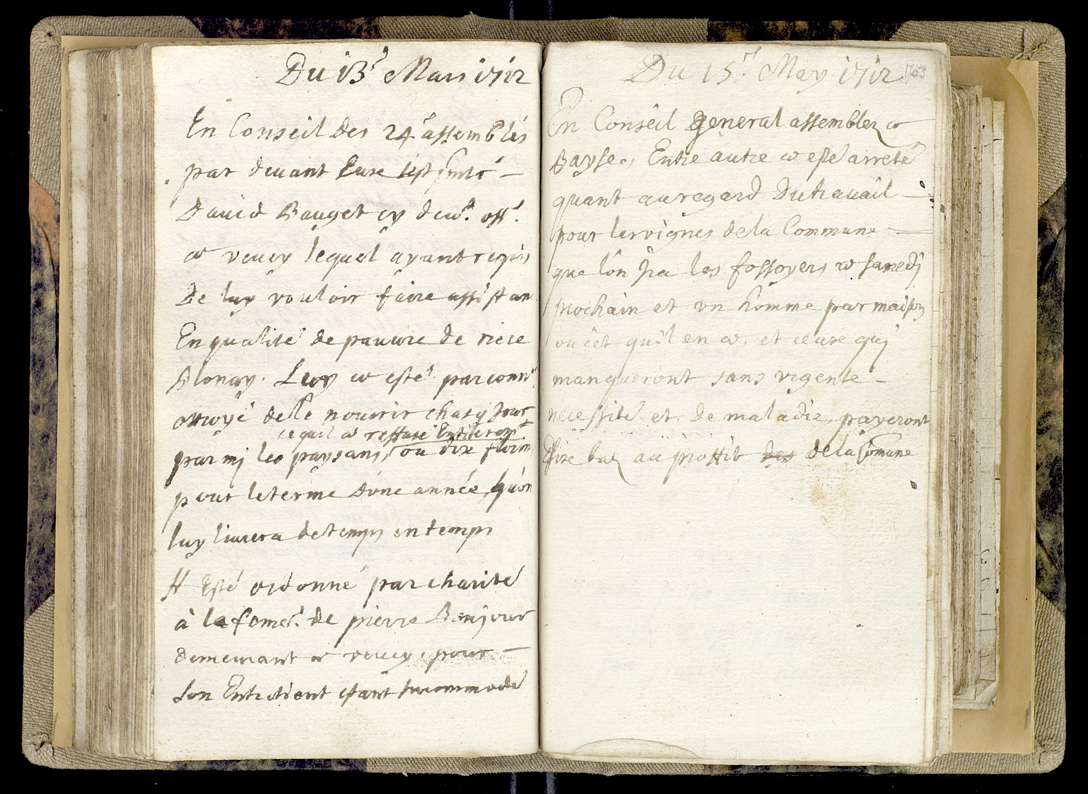 Du 13.e Mars 1712
En Conseil des 24 assemblés
par devant
David Bauget cy dev.t off.r
a vevey lequel ayant requis
De luy vouloir faire assistan
En qualité de pauvre de riere
Blonay. Luy a esté par comm
ottroyé de le nourrir chasq jour
ce quil a reffusé
parmj les paysans, ou dix florins
pour le terme dune année, quon
luy livrera de temps en temps
Il Esté ordonné par charité
à la fem.e de pierre Bonjour
demeurant a vevey, pour
son Entretient estant Incommodé
Du 15.e May 1712
163
En Conseil general assemblez a
Bayse Entre autre a esté arreté
quant au regard Du travail
pour les vignes de la Commune
que lon Ira les fossoyers a samedj
prochain et un homme par maison
et ceux quj
manqueront sans urgente
necessité et de maladie, payeront
dire batz au proffit des de la Comune